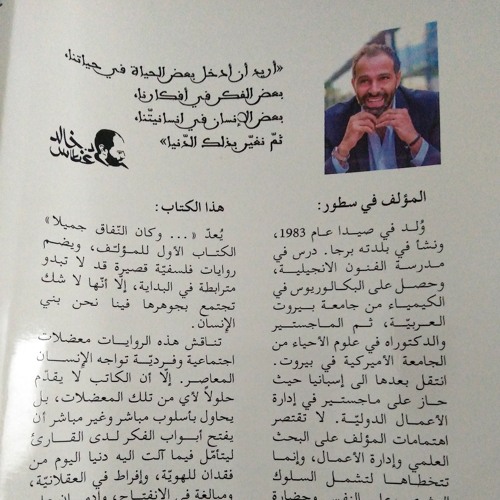 «أريد أن أدخل بعض الحياة في حياتنا،
بعض الفكر في أفكارنا،
بعض الإنسان في انسانيتّنا،
ثمّ نغيّر بذلك الدّنيا»
د. خالد
غطاس
المؤلف في سطور:
وُلد في صيدا عام 1983،
ونشأ في بلدته برجا. درس في
مدرسة الفنون الانجيلية،
وحصل على البكالوريوس في
الكيمياء من جامعة بيروت
العربيّة، ثم الماجستير
والدكتوراه في علوم الأحياء من
الجامعة الأميركية في بيروت.
انتقل بعدها الى إسبانيا حيث
حاز على ماجستير في إدارة
الأعمال الدوليّة. لا تقتصر
اهتمامات المؤلف على البحث
العلمي وإدارة الأعمال، وإنما
تتخطاها لتشمل السلوك
هذا الكتاب:
يُعدّ «... وكان النّفاق جميلا»
الكتاب الأول للمؤلّف، ويضم
روايات فلسفيّة قصيرة قد لا تبدو
مترابطة في البداية، إلّا أنّها لا شك
تجتمع بجوهرها فينا نحن بني
الإنسان.
تناقش هذه الروايات معضلات
اجتماعية وفرديّة تواجه الإنسان
المعاصر. إلّا أن الكاتب لا يقدّم
حلولاً لأي من تلك المعضلات، بل
يحاول بأسلوب مباشر وغير مباشر أن
يفتح أبواب الفكر لدى القارئ
ليتأمّل فيما آلت اليه دنيا اليوم من
فقدان للهويّة، وإفراط في العقلانيّة،
ومبالغة في الانفتاح، وإدمان على